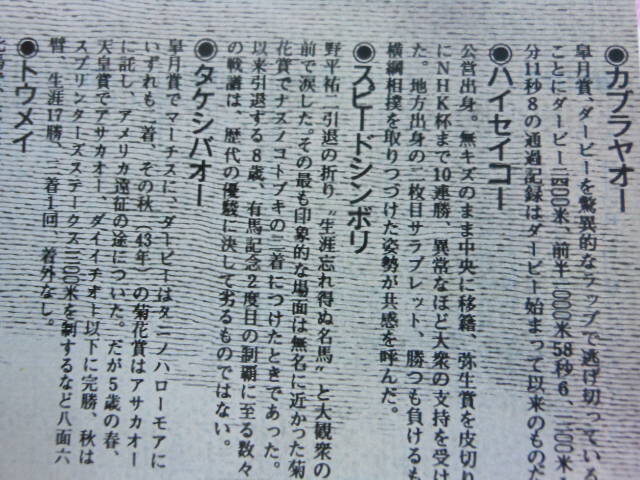 ◉カブラヤオー
皐月賞、ダービーを驚異的なラップで逃げ切っている
ことにダービー二四〇〇米、前半一〇〇〇米58秒6、一二〇〇米
分11秒8の通過記録はダービー始まって以来のものだ
◉ハイセイコー
公営出身。無キズのまま中央に移籍、弥生賞を皮切り
にNHK杯まで10連勝、異常なほど大衆の支持を受け
た。地方出身の二枚目サラブレット、勝つも負けるも
横綱相撲を取りつづけた姿勢が共感を呼んだ。
◉スピードシンボリ
野平祐二引退の折り〝生涯忘れ得ぬ名馬〟と大観衆の
前で涙した。その最も印象的な場面は無名に近かった菊
花賞でナスノコトブキの二着につけたときであった。
以来引退する8歳、有馬記念2度目の制覇に至る数々
の戦譜は、歴代の優駿に決して劣るものではない。
◉タケシバオー
皐月賞でマーチスに、ダービーはタニノハローモアに
いずれも二着、その秋(43年)の菊花賞はアサカオー
に託し、アメリカ遠征の途についた。だが5歳の春、
天皇賞でアサカオー、ダイイチオー以下に完勝、秋は
スプリンターズステークス一二〇〇米を制するなど八面六
臂、生涯17勝、二着1回、着外なし。
◉トウメイ